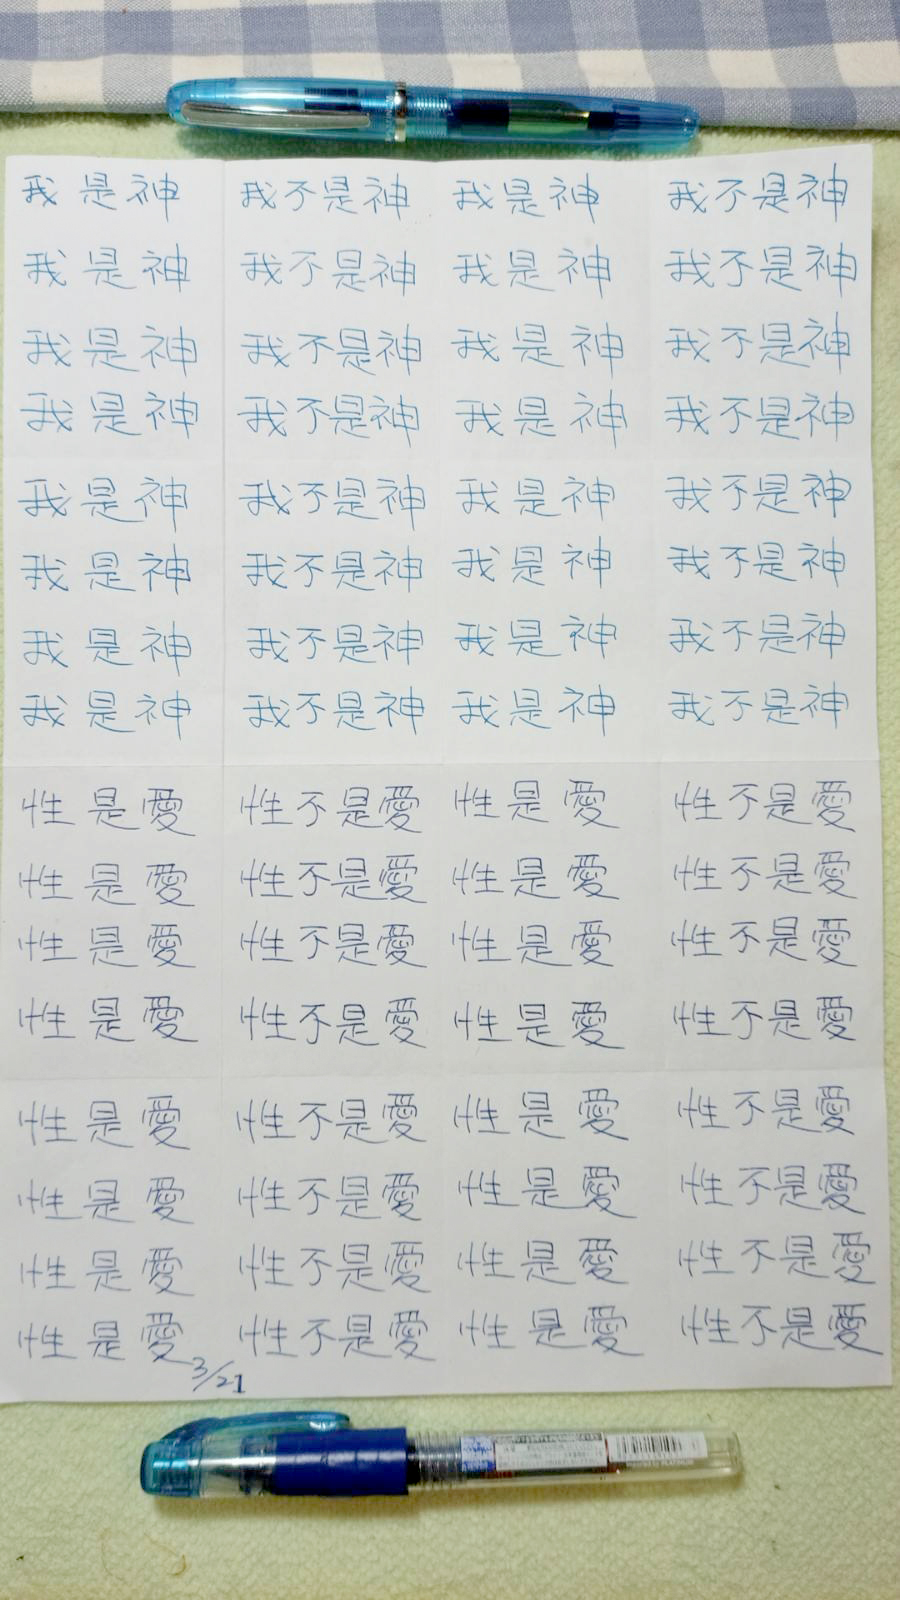 我是神 我不是神 我是神 我不是神
我是神 我不是神 我是神 我不是神
我是神 我不是神 我是神 我不是神
我是神 我不是神 我是神 我不是神
我是神 我不是神 我是神 我不是神
我是神 我不是神 我是神 我不是神
我是神 我不是神 我是神 我不是神
我是神 我不是神 我是神 我不是神
性是愛 性不是愛 性是愛 性不是愛
性是愛 性不是愛 性是愛 性不是愛
性是愛 性不是愛 性是愛 性不是愛
性是愛 性不是愛 性是愛 性不是愛
性是愛 性不是愛 性是愛 性不是愛
性是愛 性不是愛 性是愛 性不是愛
性是愛 性不是愛 性是愛 性不是愛
性是愛 性不是愛 性是愛 性不是愛
3/21
PLATINUM